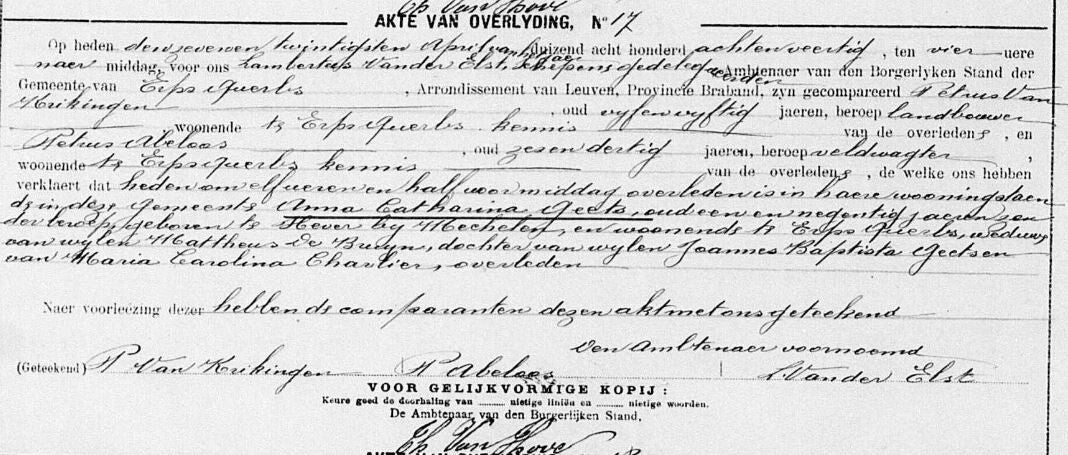 Th Van Hove
AKTE VAN OVERLYDING, N° 17
Op heden den zevenen twintigsten April van 't jaer duizend acht honderd achtenveertig, ten vier uere
naer middag, voor ons Lambertus Vander Elst, Schepens gedelegueerden Ambtenaer van den Borgerlyken Stand der
Gemeente van Erps Querbs, Arrondissement van Leuven, Provincie Braband, zyn gecompareerd Petrus Van
Krikingen, oud vyfenvyftig jaeren, beroep landbouwer
woonende te Erps Querbs kennis van de overledens, en
Petrus Abeloos, oud zesendertig jaeren, beroep veldwagter,
woonende te Erps querbs kennis van de overledens, de welke ons hebben
verklaert dat heden om elf ueren en half voormiddag overleden is in haere wooning staen
de in deze Gemeente Anna Catharina Geets, oud een en negentig jaeren zon
der beroep, geboren te Hever by Mechelen, en woonende te Erps Querbs, weduwe
van wylen Mattheus De Bruyn, dochter van wylen Joannes Baptista Geets en
van Maria Carolina Charlier, overleden
Naer voorleézing dezer hebben de comparanten dezen akt met ons geteekend
Den Ambtenaer voornoemd
(Geteekend) P Van Krikingen P Abeloos L Vander Elst
VOOR GELIJKVORMIGE KOPIJ:
Keure goed de doorhaling van ........ nietige liniën en ........ nietige woorden.
De Ambtenaar van den Burgerlijken Stand,
Th Van Hove